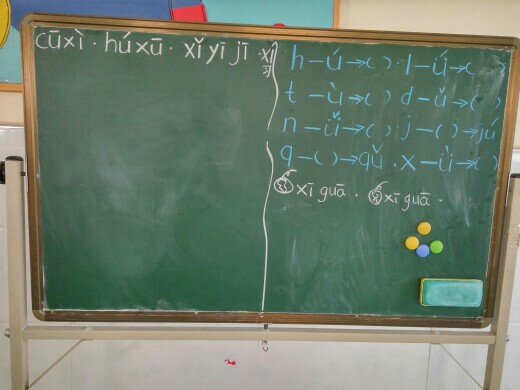 cūxì · húxū · xǐyījī · xǐ
h—ú→( ) · l—ǘ→( )
t—ù→( ) d—ǔ→( )
n—ǚ→( ) j—( )→jú
q—( )→qǔ · x—ǜ→( )
xīguā · xīguā ·